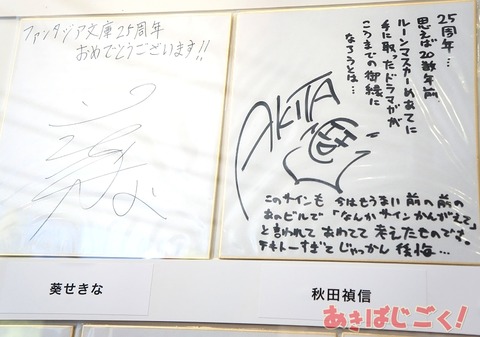 ファンタジア文庫25周年
おめでとうございます!!
葵せきな
25周年…
思えば20数年前
ルーンマスカーめあてに
手に取ったドラマガが
ここまでの御縁に
なろうとは…
AKITA
このサインも 今はもうない前の前の
あのビルで「なんかサインかんがえて」
と言われてあわてて考えたものです。
テキトーすぎてじゃっかん後悔…
秋田禎信
あきばじごく!